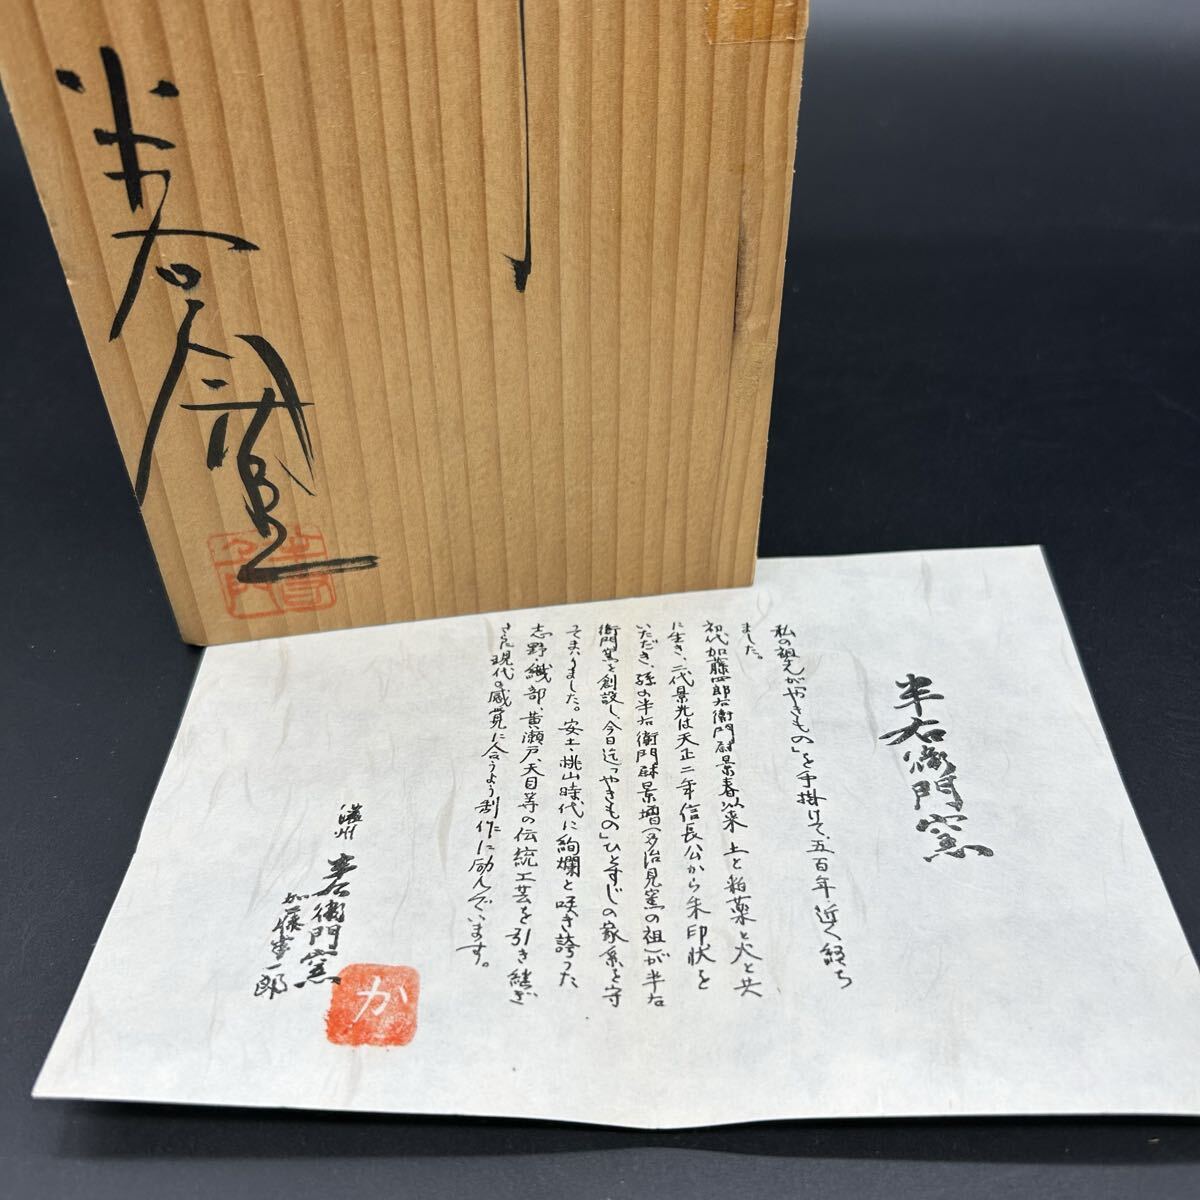 半右衛門窯
私の祖先が「やきもの」を手掛けて、五百年近く経ち
ました。
初代加藤四郎右衛門尉景春以来 土と釉薬と火と共
に生き、二代景光は天正二年信長公から朱印状を
いただき、孫の半右衛門尉景増(多治見窯の祖)が半右
衛門窯を創設し、今日迄「やきもの」ひとすじの家系を守
てまいりました。安土・桃山時代に絢爛と咲き誇った
志野・織部、黄瀬戸、天目等の伝統工芸を引き継ぎ
また現代の感覚に合うよう制作に励んでいます。
濃州 半右衛門窯
加藤 一郎
か
半右衛門